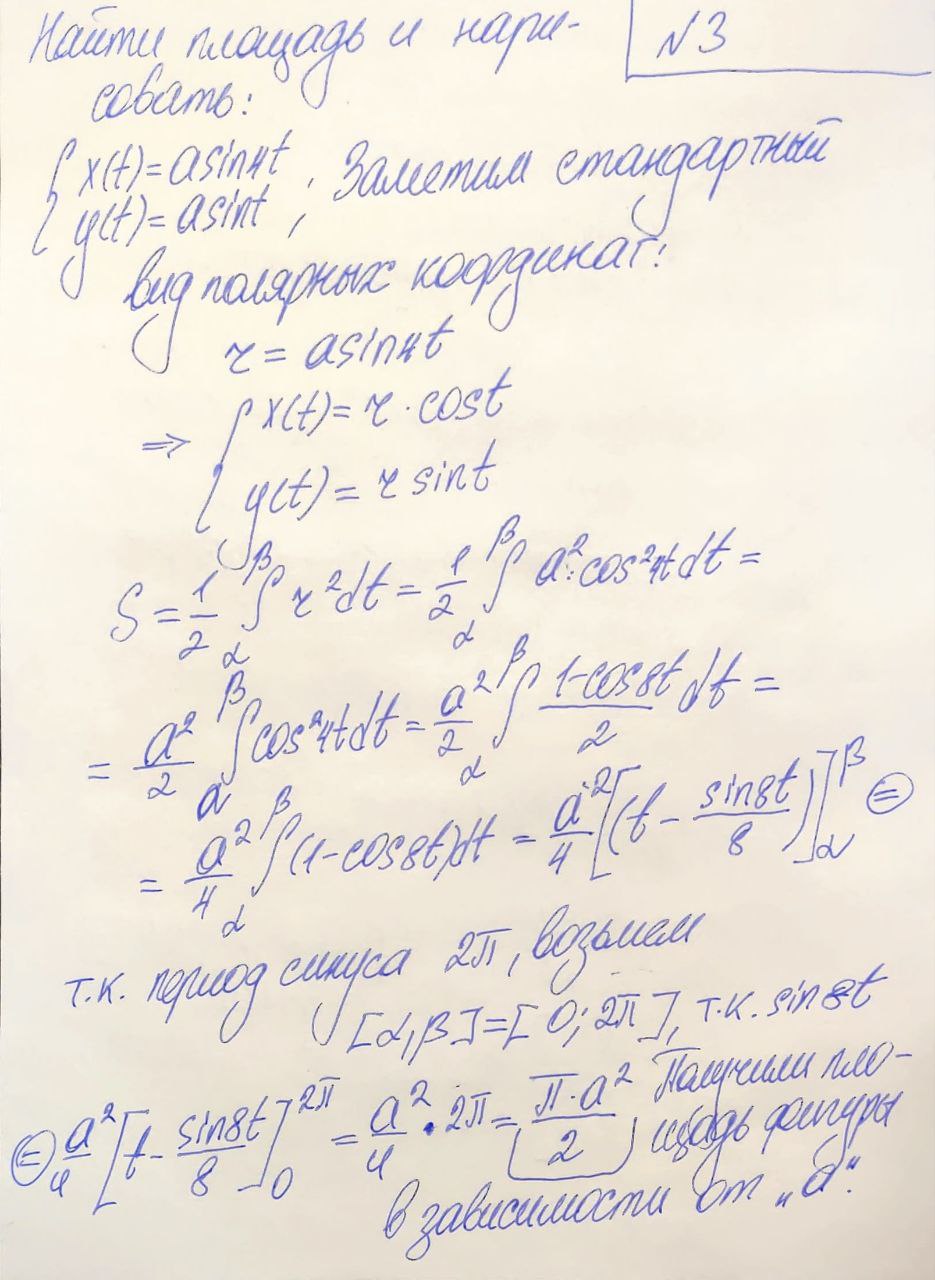 Найти площадь и нари- №3
совать:
{ x(t)=asin4t
{ y(t)=asint , Заметим стандартный
вид полярных координат:
r = asin4t
=> { x(t)= r · cost
{ y(t)= r sint
S = 1/2 ∫_α^β r² dt = 1/2 ∫_α^β a²·cos²4t dt =
= a²/2 ∫_α^β cos²4t dt = a²/2 ∫_α^β (1-cos8t)/2 dt =
= a²/4 ∫_α^β (1-cos8t)dt = a²/4 [(t - sin8t/8)]_α^β ⊜
т.к. период синуса 2π, возьмем
[α,β]=[0;2π], т.к. sin8t
⊜ a²/4 [t - sin8t/8]_0^2π = a²/4 · 2π = π·a²/2 Получили пло-
щадь фигуры
в зависимости от „a“.